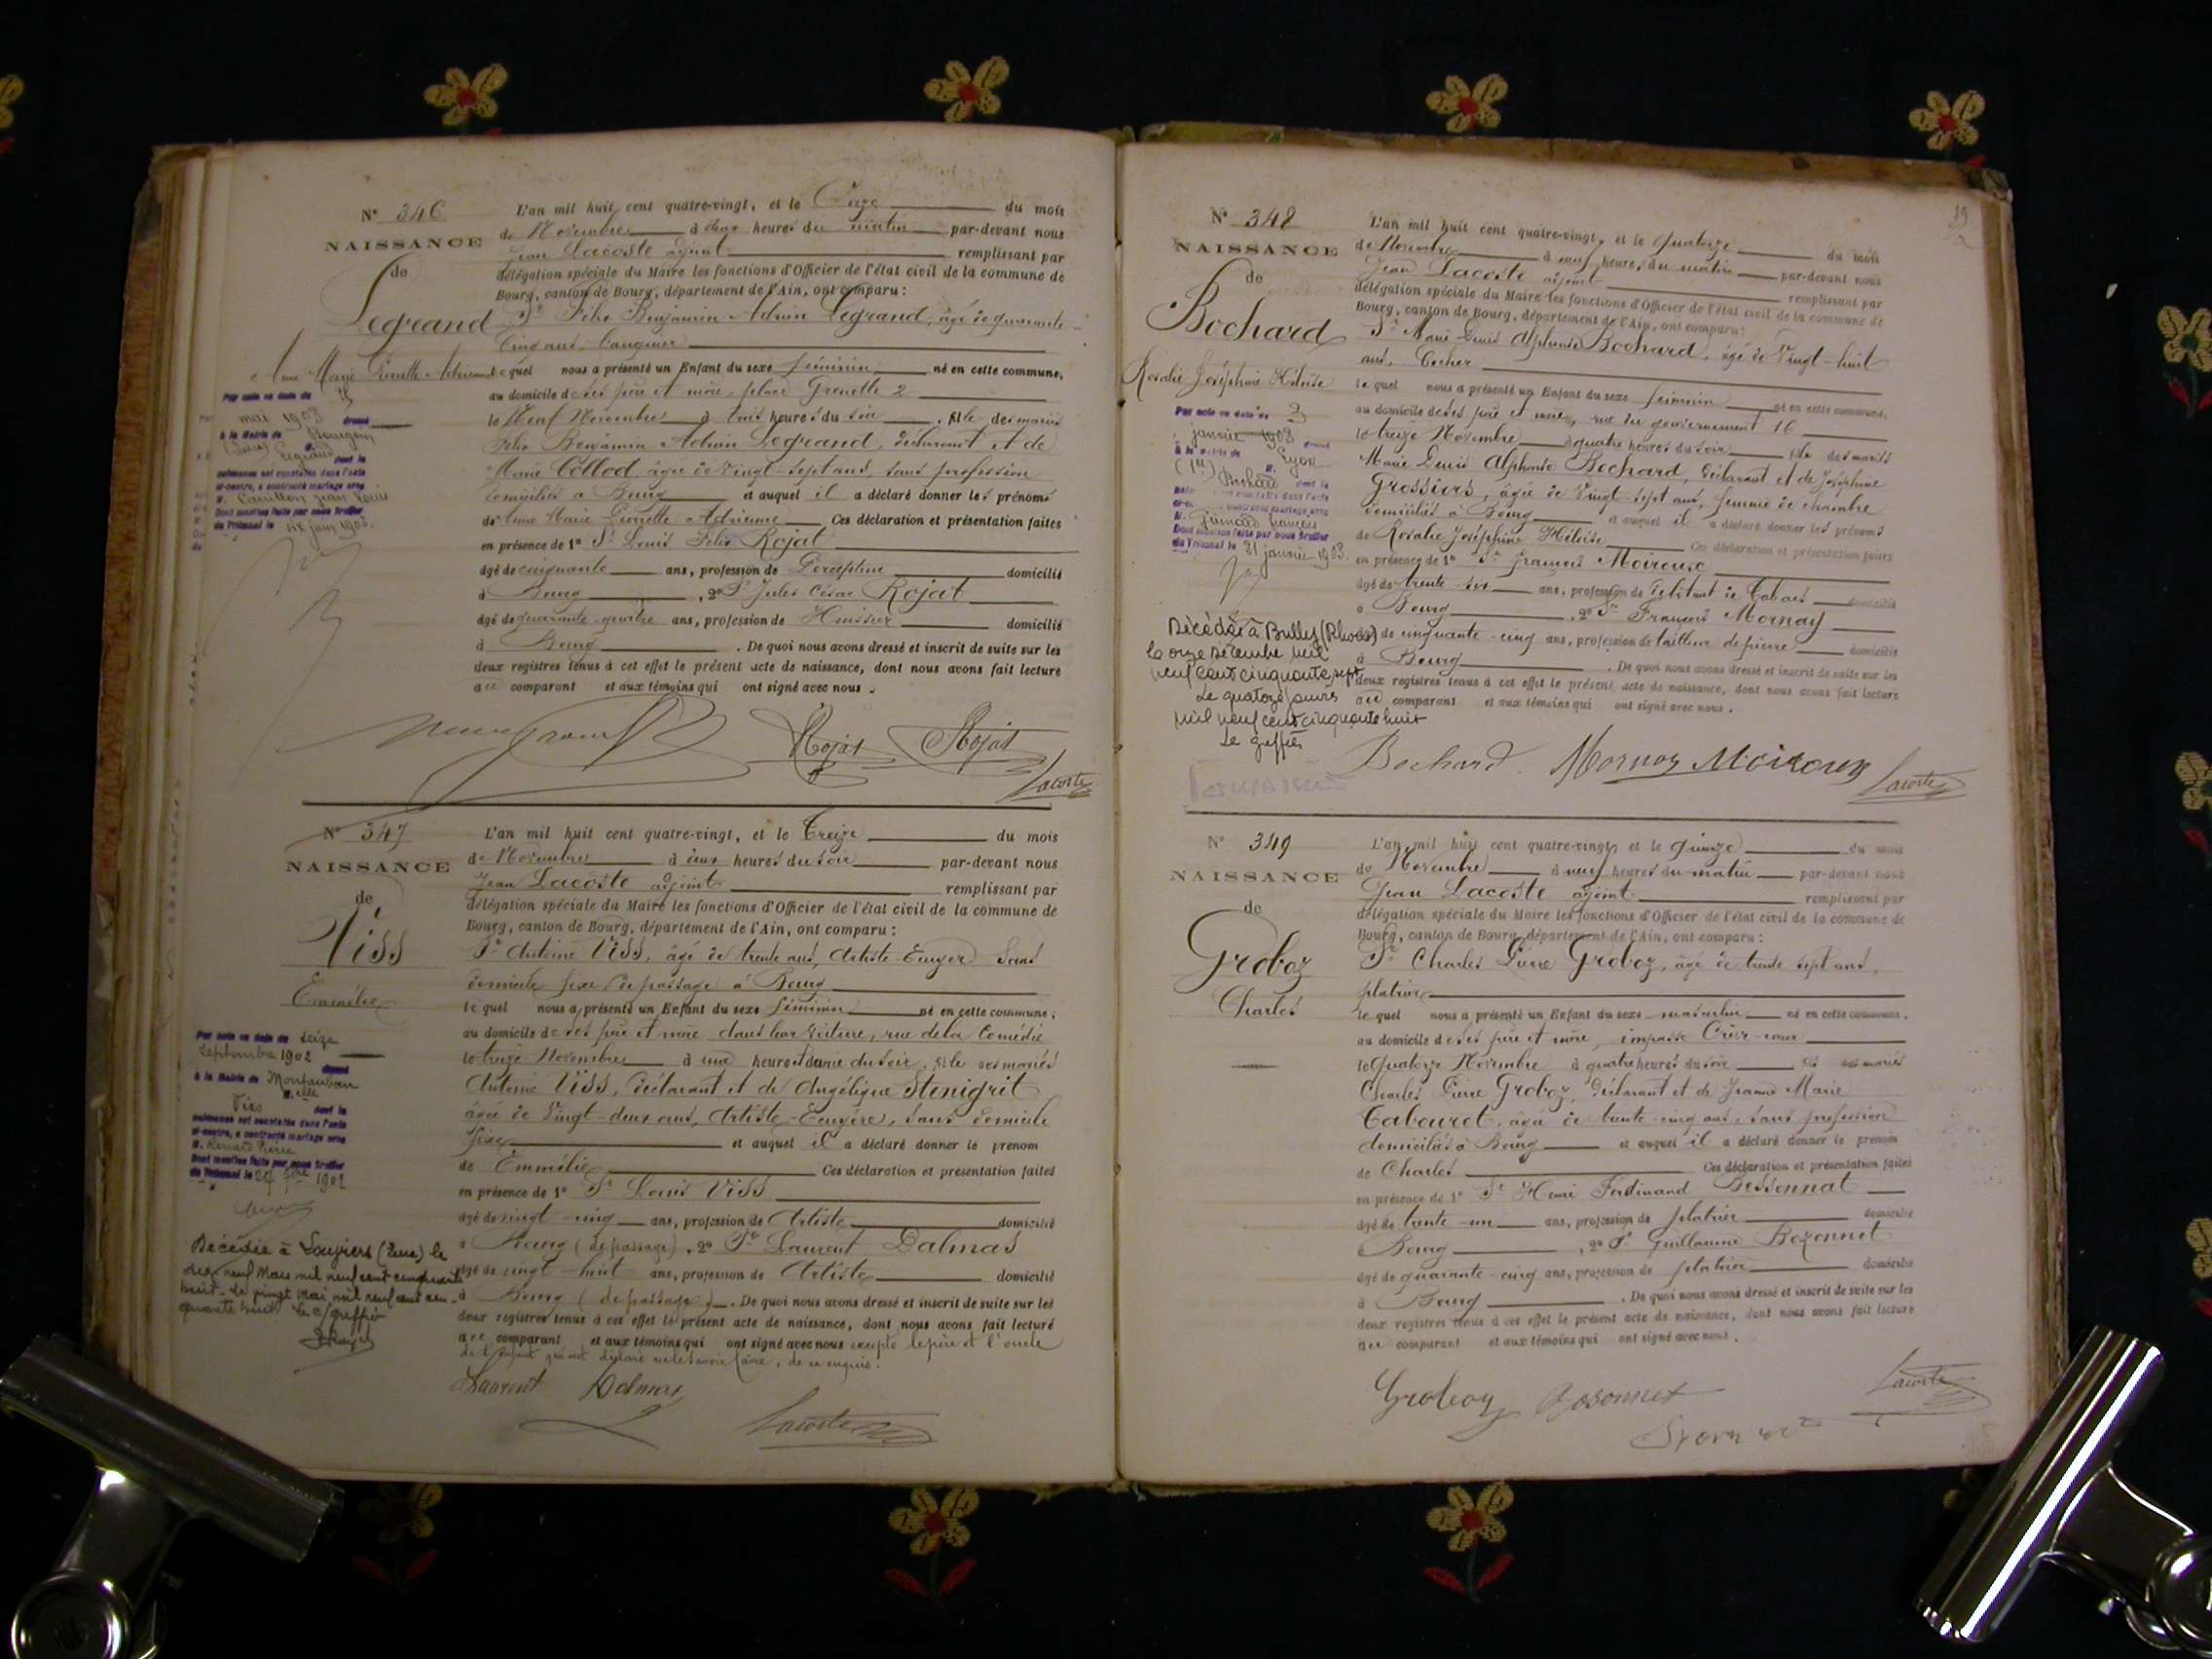 N° 346
NAISSANCE
de
Legrand
Anne Marie Pierrette Adrienne
Par acte en date du
mai 1903 dressé
à la Mairie de Bourgoin
(Isère) Legrand
dont la
naissance est constatée dans l'acte
ci-contre, a contracté mariage avec
M. Cavillon Jean Louis
Dont mention faite par nous Greffier
du Tribunal le juin 1903.
L'an mil huit cent quatre-vingt, et le Onze du mois
de Novembre à deux heures du matin par-devant nous
Jean Lacoste adjoint remplissant par
délégation spéciale du Maire les fonctions d'Officier de l'état civil de la commune de
Bourg, canton de Bourg, département de l'Ain, ont comparu :
Sr Félix Benjamin Adrien Legrand, âgé de quarante-
cinq ans, banquier
lequel nous a présenté un Enfant du sexe féminin né en cette commune,
au domicile de ses père et mère, place Grenette 2
le Neuf Novembre à trois heures du soir, fille des mariés
Félix Benjamin Adrien Legrand, déclarant et de
Marie Collod, âgée de vingt-sept ans, sans profession
domiciliés à Bourg et auquel il a déclaré donner les prénoms
de Anne Marie Pierrette Adrienne Ces déclaration et présentation faites
en présence de 1° Sr Louis Félix Rojat
âgé de cinquante ans, profession de Percepteur domicilié
à Bourg, 2° Sr Jules César Rojat
âgé de quarante-quatre ans, profession de Huissier domicilié
à Bourg. De quoi nous avons dressé et inscrit de suite sur les
deux registres tenus à cet effet le présent acte de naissance, dont nous avons fait lecture
au comparant et aux témoins qui ont signé avec nous.
Rojat Rojat
Lacoste
N° 347
NAISSANCE
de
Viss
Emmélie
Par acte en date du seize
Septembre 1902
dressé
à la Mairie de Montauban
Melle
Viss dont la
naissance est constatée dans l'acte
ci-contre, a contracté mariage avec
M. Renard Pierre
Dont mention faite par nous Greffier
du Tribunal le 24 7bre 1902
Décédée à (Eure) le
dix neuf Mars mil neuf cent cinquante
huit - Le vingt Mai mil neuf cent cin-
quante huit. Le c/greffier
L'an mil huit cent quatre-vingt, et le Treize du mois
de Novembre à deux heures du soir par-devant nous
Jean Lacoste adjoint remplissant par
délégation spéciale du Maire les fonctions d'Officier de l'état civil de la commune de
Bourg, canton de Bourg, département de l'Ain, ont comparu :
Sr Antoine Viss, âgé de trente ans, Artiste-Ecuyer Sans
domicile fixe, de passage à Bourg
lequel nous a présenté un Enfant du sexe féminin né en cette commune,
au domicile de ses père et mère dans leur voiture, rue de la Comédie
le treize Novembre à une heure et demie du soir, fille des mariés
Antoine Viss, déclarant et de Angélique Stenigrit
âgée de Vingt-deux ans, Artiste-Ecuyère, Sans domicile
fixe et auquel il a déclaré donner le prénom
de Emmélie Ces déclaration et présentation faites
en présence de 1° Sr Louis Viss
âgé de vingt-cinq ans, profession de Artiste domicilié
à Bourg (de passage), 2° Sr Laurent Dalmas
âgé de vingt-huit ans, profession de Artiste domicilié
à Bourg (de passage). De quoi nous avons dressé et inscrit de suite sur les
deux registres tenus à cet effet le présent acte de naissance, dont nous avons fait lecture
au comparant et aux témoins qui ont signé avec nous excepté le père et l'oncle
de l'enfant qui ont déclaré ne le savoir faire, de ce enquis.
Laurent Dalmas
Lacoste
19
N° 348
NAISSANCE
de
Bochard
Rosalie Joséphine Héloïse
Par acte en date du 3
janvier 1903 dressé
à la Mairie de Lyon
Bochard dont la
naissance est constatée dans l'acte
ci-contre, a contracté mariage avec
M. François
Dont mention faite par nous Greffier
du Tribunal le 31 janvier 1903.
Décédée à Bully (Rhône)
le onze Décembre mil
neuf cent cinquante sept
Le quatorze janvier
mil neuf cent cinquante huit
Le greffier
L'an mil huit cent quatre-vingt, et le Quatorze du mois
de Novembre à neuf heures du matin par-devant nous
Jean Lacoste adjoint remplissant par
délégation spéciale du Maire les fonctions d'Officier de l'état civil de la commune de
Bourg, canton de Bourg, département de l'Ain, ont comparu :
Sr Marie Denis Alphonse Bochard, âgé de Vingt-huit
ans, Cocher
lequel nous a présenté un Enfant du sexe féminin né en cette commune,
au domicile de ses père et mère, rue du gouvernement 16
le treize Novembre à quatre heures du soir, fille des mariés
Marie Denis Alphonse Bochard, déclarant et de Joséphine
Grossiord, âgée de Vingt-sept ans, femme de chambre
domiciliés à Bourg et auquel il a déclaré donner les prénoms
de Rosalie Joséphine Héloïse Ces déclaration et présentation faites
en présence de 1° Sr François Moiroux
âgé de trente-six ans, profession de Débitant de Tabacs domicilié
à Bourg, 2° Sr François Mornay
âgé de cinquante-cinq ans, profession de tailleur de pierre domicilié
à Bourg. De quoi nous avons dressé et inscrit de suite sur les
deux registres tenus à cet effet le présent acte de naissance, dont nous avons fait lecture
au comparant et aux témoins qui ont signé avec nous.
Bochard Mornay Moiroux
Lacoste
N° 349
NAISSANCE
de
Groboz
Charles
L'an mil huit cent quatre-vingt, et le quinze du mois
de Novembre à neuf heures du matin par-devant nous
Jean Lacoste adjoint remplissant par
délégation spéciale du Maire les fonctions d'Officier de l'état civil de la commune de
Bourg, canton de Bourg, département de l'Ain, ont comparu :
Sr Charles Pierre Groboz, âgé de trente sept ans,
plâtrier
lequel nous a présenté un Enfant du sexe masculin né en cette commune,
au domicile de ses père et mère, impasse Crève-coeur
le Quatorze Novembre à quatre heures du soir fils des mariés
Charles Pierre Groboz, déclarant et de Jeanne Marie
Tabouret, âgée de trente-cinq ans, sans profession
domiciliés à Bourg et auquel il a déclaré donner le prénom
de Charles Ces déclaration et présentation faites
en présence de 1° Sr Henri Ferdinand Bessonnat
âgé de trente-un ans, profession de plâtrier domicilié
Bourg, 2° Sr Guillaume Bozonnet
âgé de quarante-cinq ans, profession de plâtrier domicilié
à Bourg. De quoi nous avons dressé et inscrit de suite sur les
deux registres tenus à cet effet le présent acte de naissance, dont nous avons fait lecture
au comparant et aux témoins qui ont signé avec nous.
Groboz Bosonnet
Lacoste